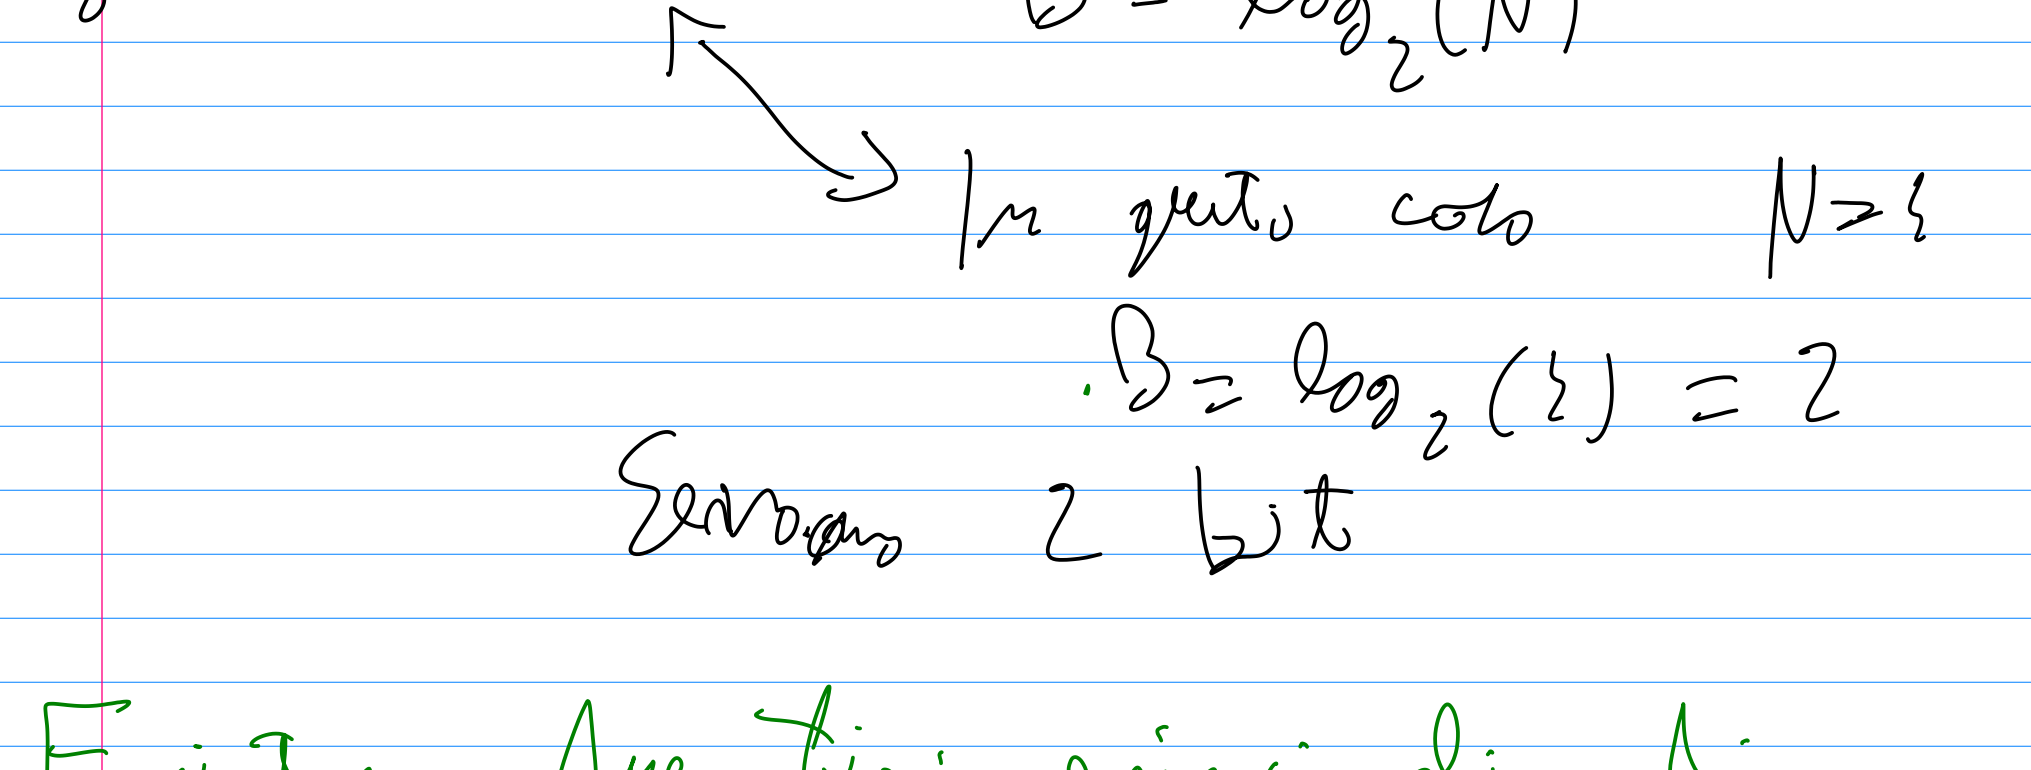 B = log₂(N)
In questo caso N=3
B = log₂(3) = 2
Servono 2 bit